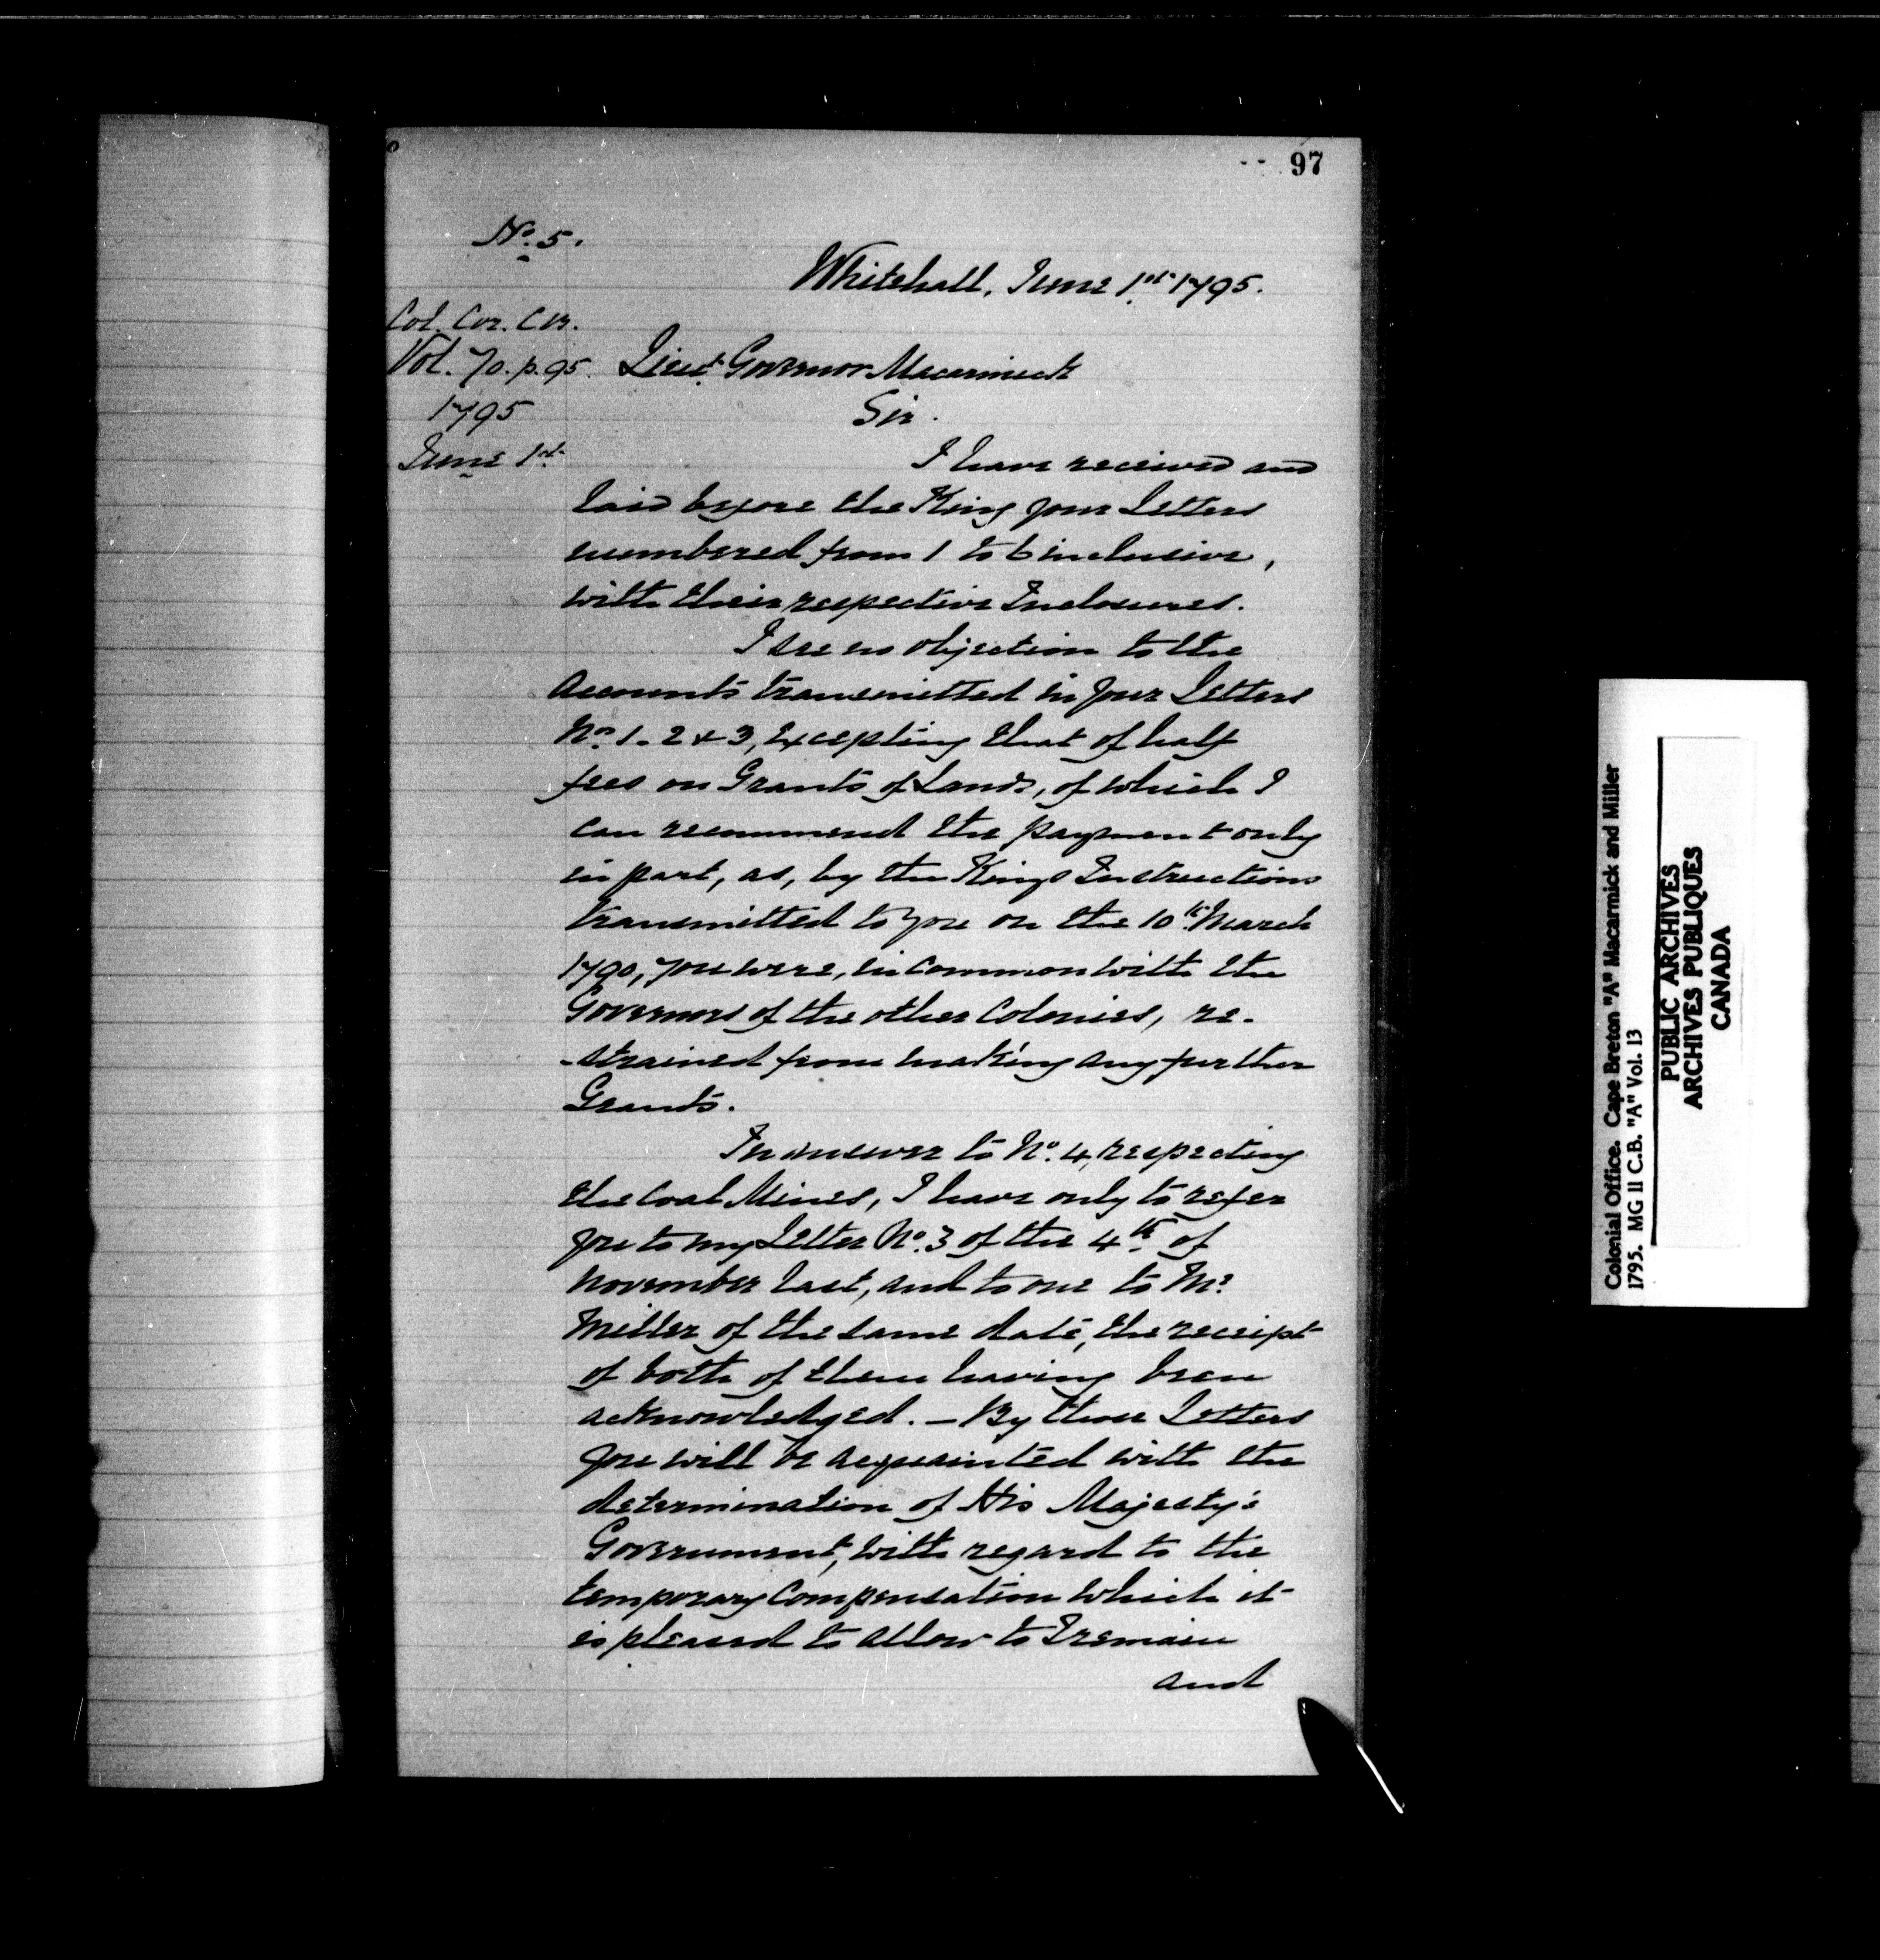 97
No. 5.
Whitehall, June 1st 1795.
Col. Cor. C.B.
Vol. 70. p. 95.
1795
June 1st
Lieut. Governor Macarmick
Sir.
I have received and
laid before the King your Letters
numbered from 1 to 6 inclusive,
with their respective Inclosures.
I see no objection to the
Accounts transmitted in your Letters
Nos. 1. 2 & 3, excepting that of half
fees on Grants of Lands, of which I
can recommend the payment only
in part, as, by the Kings Instructions
transmitted to you on the 10th March
1790, you were, in common with the
Governors of the other Colonies, re-
-strained from making any further
Grants.
In answer to No. 4, respecting
the Coal Mines, I have only to refer
you to my Letter No. 3 of the 4th of
November last, and to one to Mr.
Miller of the same date, the receipt
of both of them having been
acknowledged. — By those Letters
you will be acquainted with the
determination of His Majesty's
Government, with regard to the
temporary Compensation which it
is pleased to allow to Tremain
and
Colonial Office. Cape Breton "A" Macarmick and Miller
1795. MG 11 C.B. "A" Vol. 13
PUBLIC ARCHIVES
ARCHIVES PUBLIQUES
CANADA